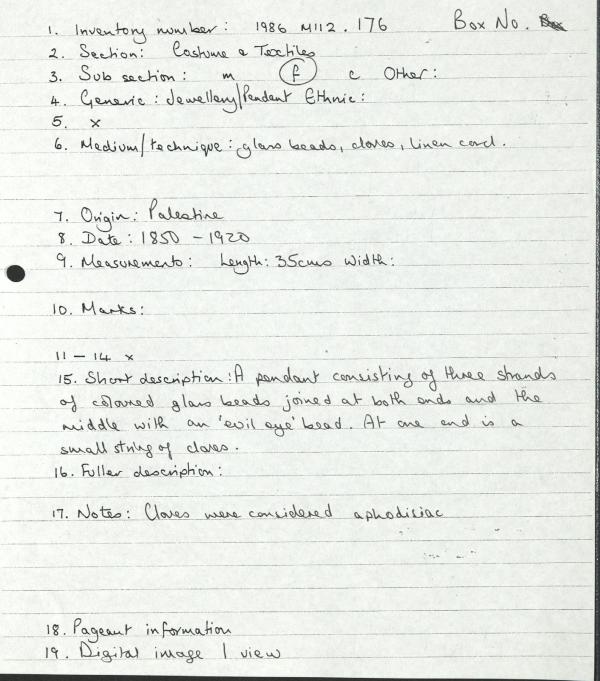 1. Inventory number: 1986 M112.176 Box No.
2. Section: Costume & Textiles
3. Sub section: m f c Other:
4. Generic: Jewellery/Pendant Ethnic:
5. x
6. Medium/technique: glass beads, cloves, linen cord.
7. Origin: Palestine
8. Date: 1850 - 1920
9. Measurements: Length: 35cms Width:
10. Marks:
11 - 14 x
15. Short description: A pendant consisting of three strands
of coloured glass beads joined at both ends and the
middle with an 'evil eye' bead. At one end is a
small string of cloves.
16. Fuller description:
17. Notes: Cloves were considered aphodisiac
18. Pageant information
19. Digital image 1 view